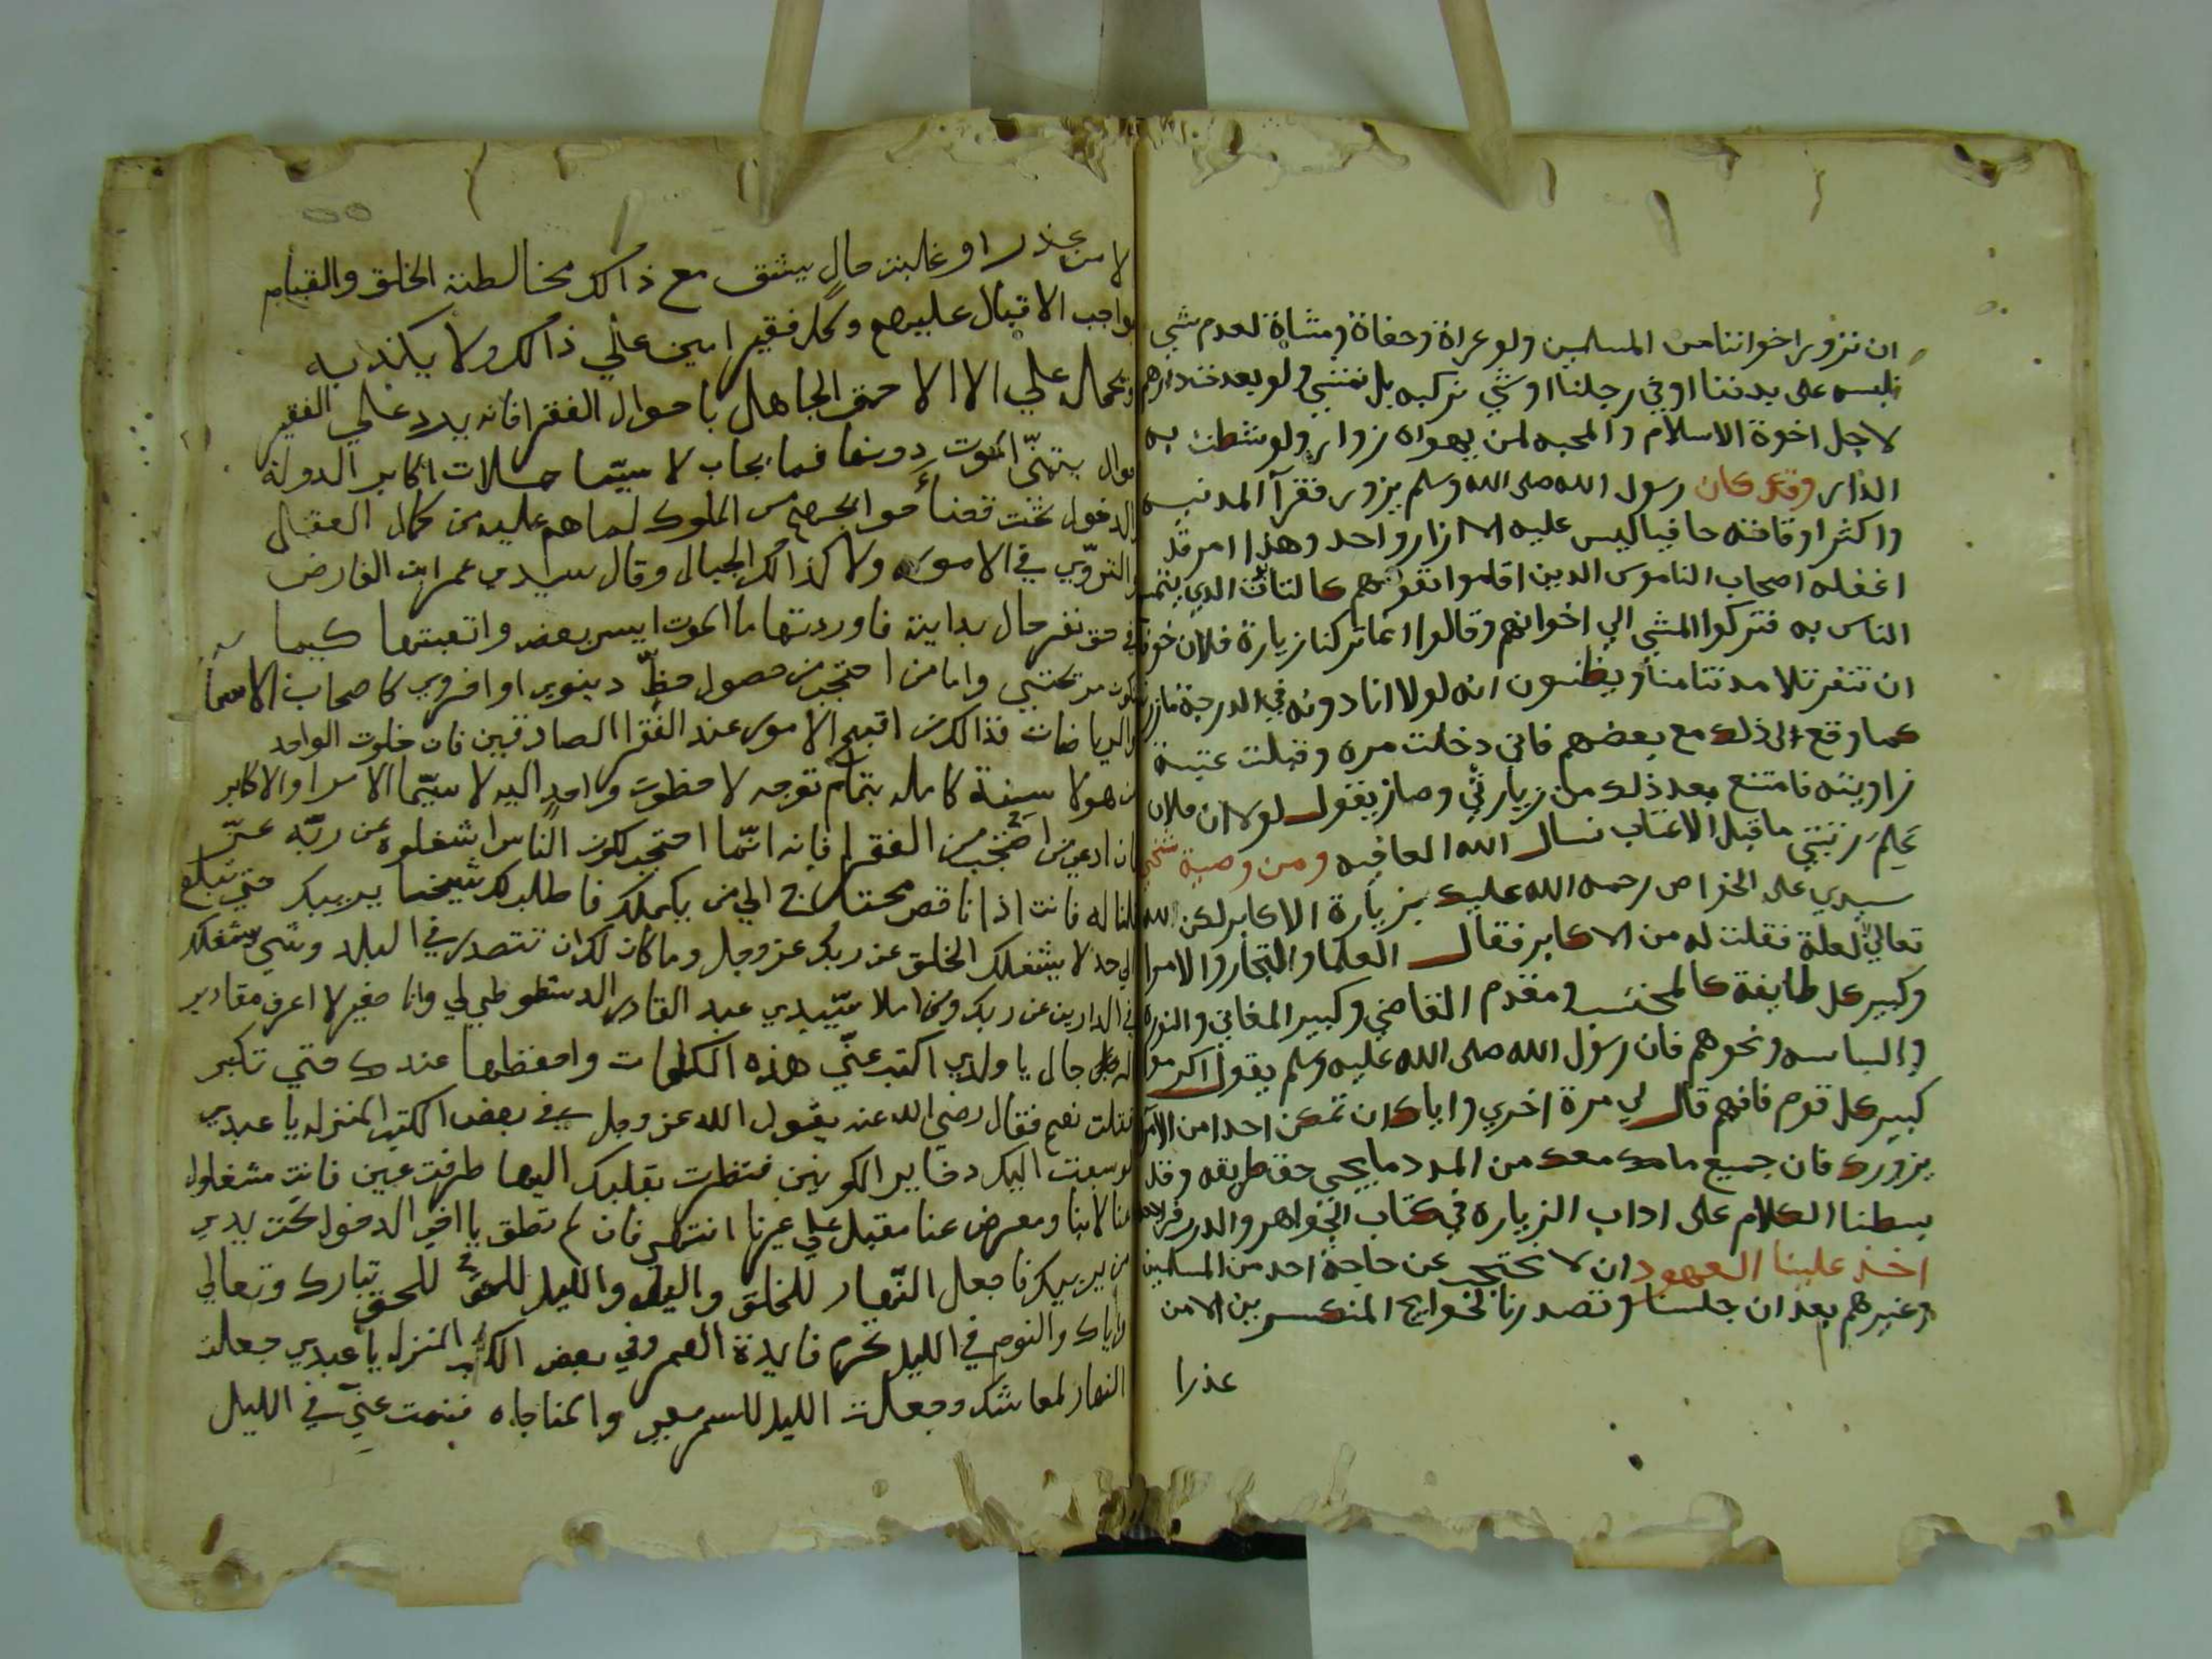 ان نزور اخواننا من المسلمين ولو عراة وحفاة ومشاة لعدم شي
نلبسه على بدننا او في رجلنا او شي نركبه بل نمشي ولو بعدت دارهم
لاجل اخوة الاسلام والمحبه لمن يهواه زوار ولو شطت به
الدار وقد كان رسول الله صلى الله وسلم يزور فقرآ المدنيه
واكثر اوقاته حافيا ليس عليه الا ازار واحد وهذا امر قد
اغفله اصحاب الناموس الدين اقاموا نفوسهم
الناس به فتركوا المشي الي اخوانهم وقالوا انما تركنا زيارة فلان خوفا
ان تتفر تلامدتنا منا ويظنون انه لولا انا دونه في الدرجة مازرناه
كما وقع لى ذلك مع بعضهم فاني دخلت مره وقبلت عتبة
زاويته فامتنع بعد ذلك من زيارتي وصار يقول لولا ان فلان
علم رتبتي ما قبل الاعتاب نسال الله العافيه ومن وصية شيخي
سيدي على الخواص رحمه الله عليك بزيارة الاكابر لكن لله
تعالي لعلة فقلت له من الاكابر فقال العلما والتجار والامرا
وكبير كل طايفة كالمحتسب ومقدم القاضي وكبير المغاني
ونحوهم فان رسول الله صلى الله عليه وسلم يقول اكرموا
كبير كل قوم فافهم قال لي مرة اخري واياك ان تمكن احدا من الامرا
يزورك فان جميع ما معك من المدد ما يجي حق طريقه وقد
بسطنا الكلام على اداب الزياره في كتاب الجواهر والدرر
اخذ علينا العهود ان لا نحتجب عن حاجة احد من المسلمين
وغيرهم بعد ان جلسنا وتصدرنا لحوايج المنكسرين الا من
عذرا
لا من عذر او غلبت حال يشق مع ذالك مخالطة الخلق والقيام
بواجب الاقبال عليهم وكل فقير امين علي ذالك ولا يكذبه
علي الا الا حق الجاهل باحوال الفقرا فانه يرد علي الفقير
يتمنّي الموت دونها فما يجاب لا سيّما حملات اكابر الدولة
والدخول تحت قضاء حوايجهم من الملوك لما هم عليه من كمال العقل
والتروّي في الامور ولا كذالك الجبال وقال سيدي عمر ابن الفارض
في حق نفسه حال بداية فاوردتها ما الموت ايسر بعضه واتعبتها كيما
تكون مريحتي واما من احتجب من حصول حظّ دينوي او اخروي كاصحاب الاسما
والرياضات فذالك من اقبح الامور عند الفقرا الصادقين فان خلوت الواحد
من هولا سنة كامله بتمام توجه لا حظوت واحد اليه لا سيّما الامرا والاكابر
فان ادعي من احتجب من الفقرا فانه انّما احتجب لكون الناس اشغلوه عن ربّه عزّ
قلنا له فانت اذا ناقص محتاج الي من يكملك فاطلب لك شيخا يربيك حتي تبلغ
الي حد لا يشغلك الخلق عن ربك عز وجل وما كان لك ان تتصدر في البلد وشي يشغلك
في الدارين عن ربك ومن املا سيّيدي عبد القادر الدشطوطي لي وانا صغير لا اعرف مقادير
الرجال يا ولدي اكتب عنّي هذه الكلمات واحفظها عندك حتي تكبر
فقلت نعم فقال رضي الله عنه يقول الله عز وجل في بعض الكتب المنزله يا عبدي
لو سقت اليك دخاير الكونين فنظرت بقلبك اليها طرفت عين فانت مشغول
عنا لابنا ومعرض عنا مقبل علي غيرنا انتهى فان لم تطق يا اخي الدخول تحت يدي
من يربيك فاجعل النّهار للخلق والليل للحق تبارك وتعالي
واياك والنوم في الليل تحرم فايدة العمر وفي بعض الكتب المنزله يا عبدي جعلت
النهار لمعاشك وجعلت الليل للسمر معي والمناجاه فنمت عنّي في الليل